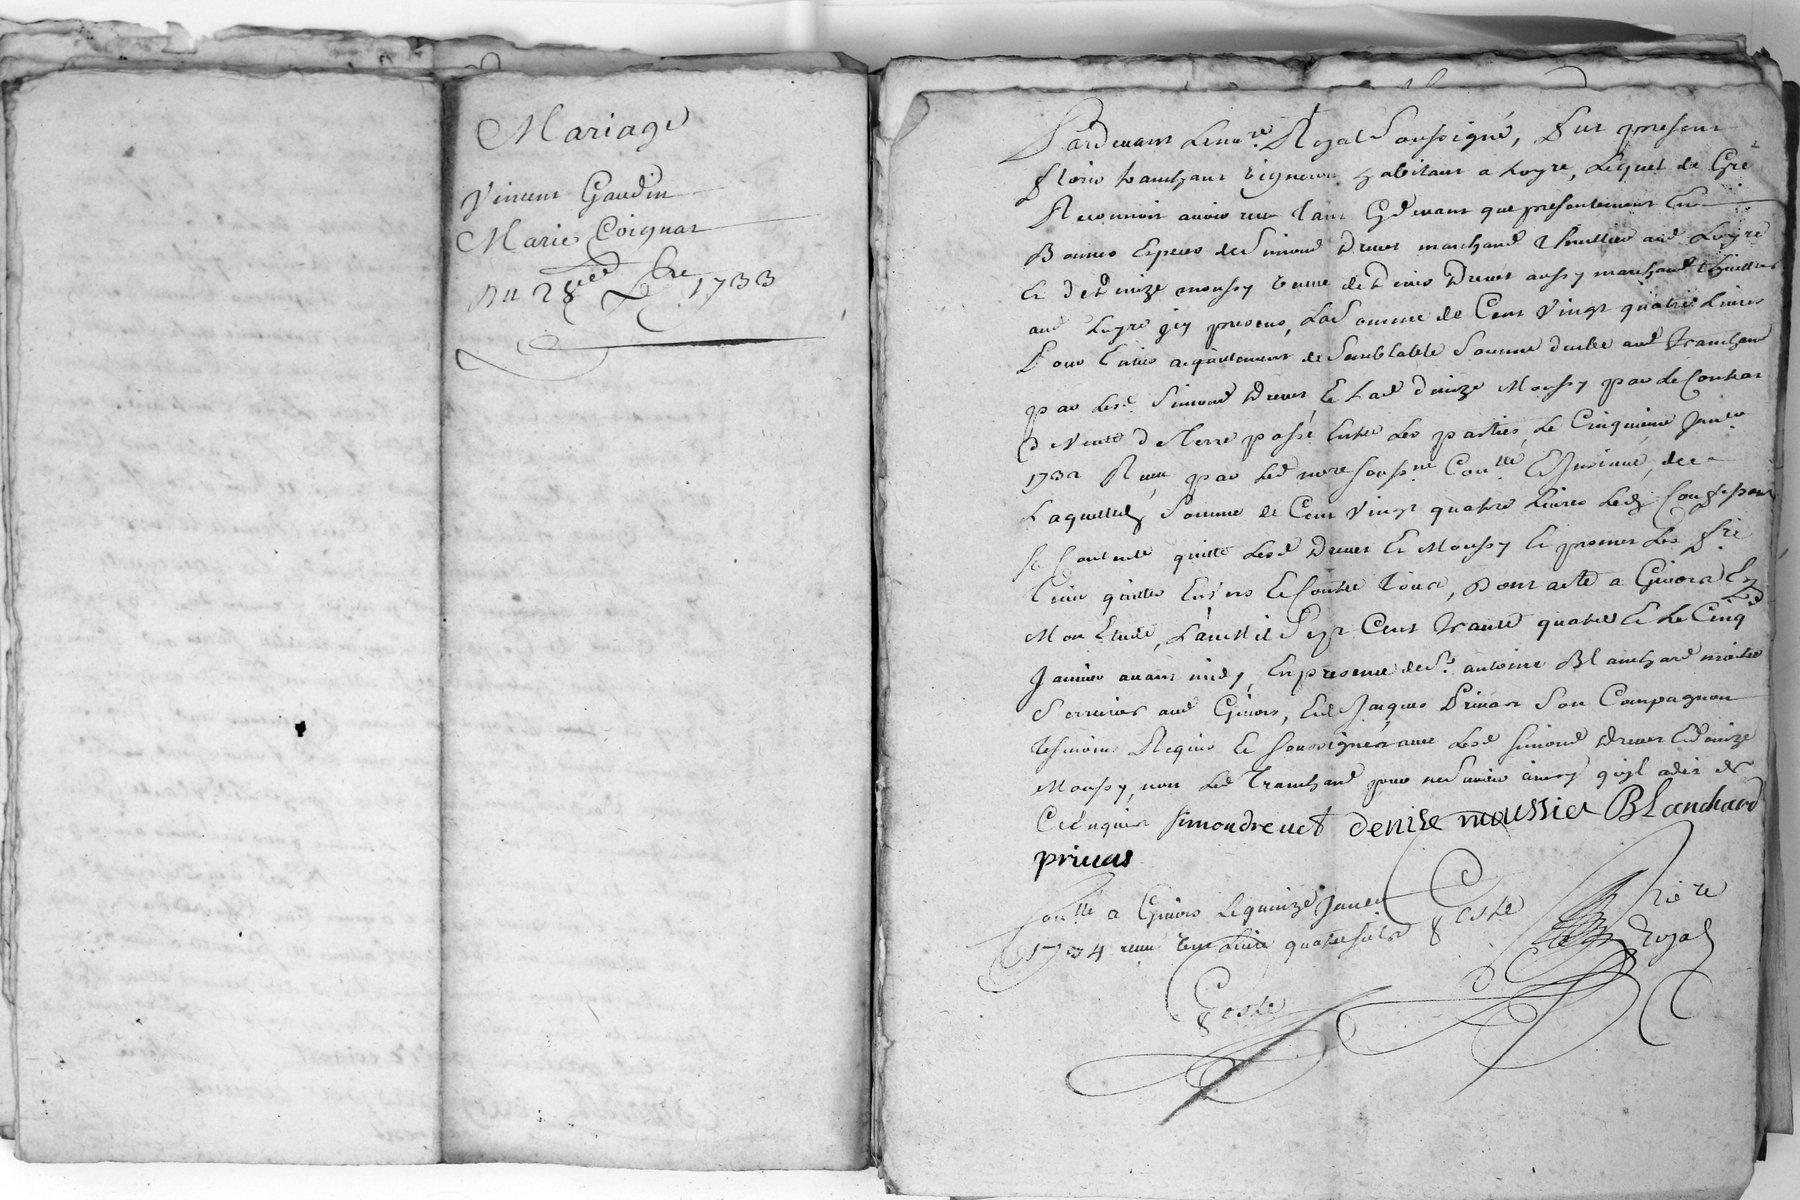 Mariage
Vincent Gaudin
Marie Coignat
Du 28e xbre 1733
Pardevant Le nore Royal Soussigné, fut present
fleury tranchant vigneron habitant a Loyre, Lequel de Gré
Reconnoit avoir receu tant Cydevant que presentement En
Bonnes Especes de Simond Drevet marchand thuillier aud Loyre
Et de Denize moussy veuve de Denis Drevet aussy marchand thuillier
aud Loyre icy presens, La Somme de Cent Vingt quatre Livres
Pour Entier acquittement de Semblable Somme deube aud tranchant
par Lesd Simond Drevet Et Lad denize Moussy par Le Contrat
de Vente de Terre passé Entre Les parties Le Cinquieme Janer
1732 Receu par Led nore soussné Conllé Et Insinué, de
Laquelle Somme de Cent Vingt quatre Livres Led
Se Contente quitte Lesd Drevet Et Moussy Et promet Les fre
tenir quittes Envers Et Contre tous, Dont acte a Givors En
Mon Etude, L'an Mil Sept Cent trante quatre Et Le Cinq
Janvier avant midy, En presence de Sr antoine Blanchard maitre
Serrurier aud Givors, Et Jacques Privat Son Compagnon
tesmoins Requis Et Soussignés avec Lesd Simond Drevet Et denize
Moussy, non Led Tranchand pour ne Savoir ainsy qu'il a dit de
Ce Enquis simondrevet denise moussier Blanchard
privas
Conllé a Givors Le quinze Janer
1734 receu une Livre quatre sols
Coste
nore
Royal
Coste